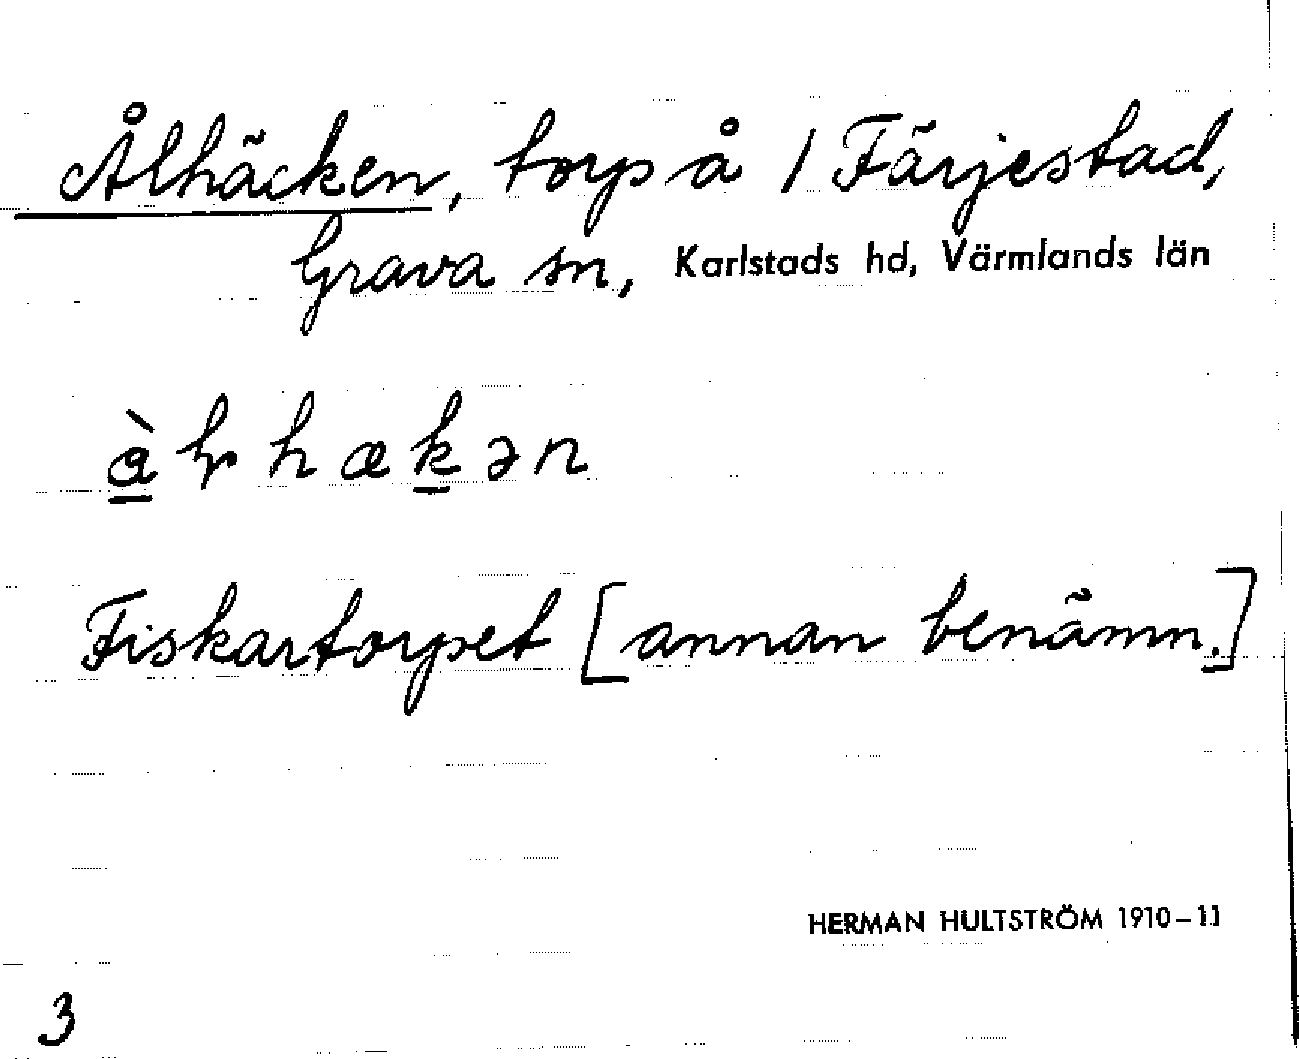 Ålhäcken, torp å 1 Färjestad,
Grava sn, Karlstads hd, Värmlands län
Fiskartorpet [annan benämn.]
HERMAN HULTSTRÖM 1910–11
3